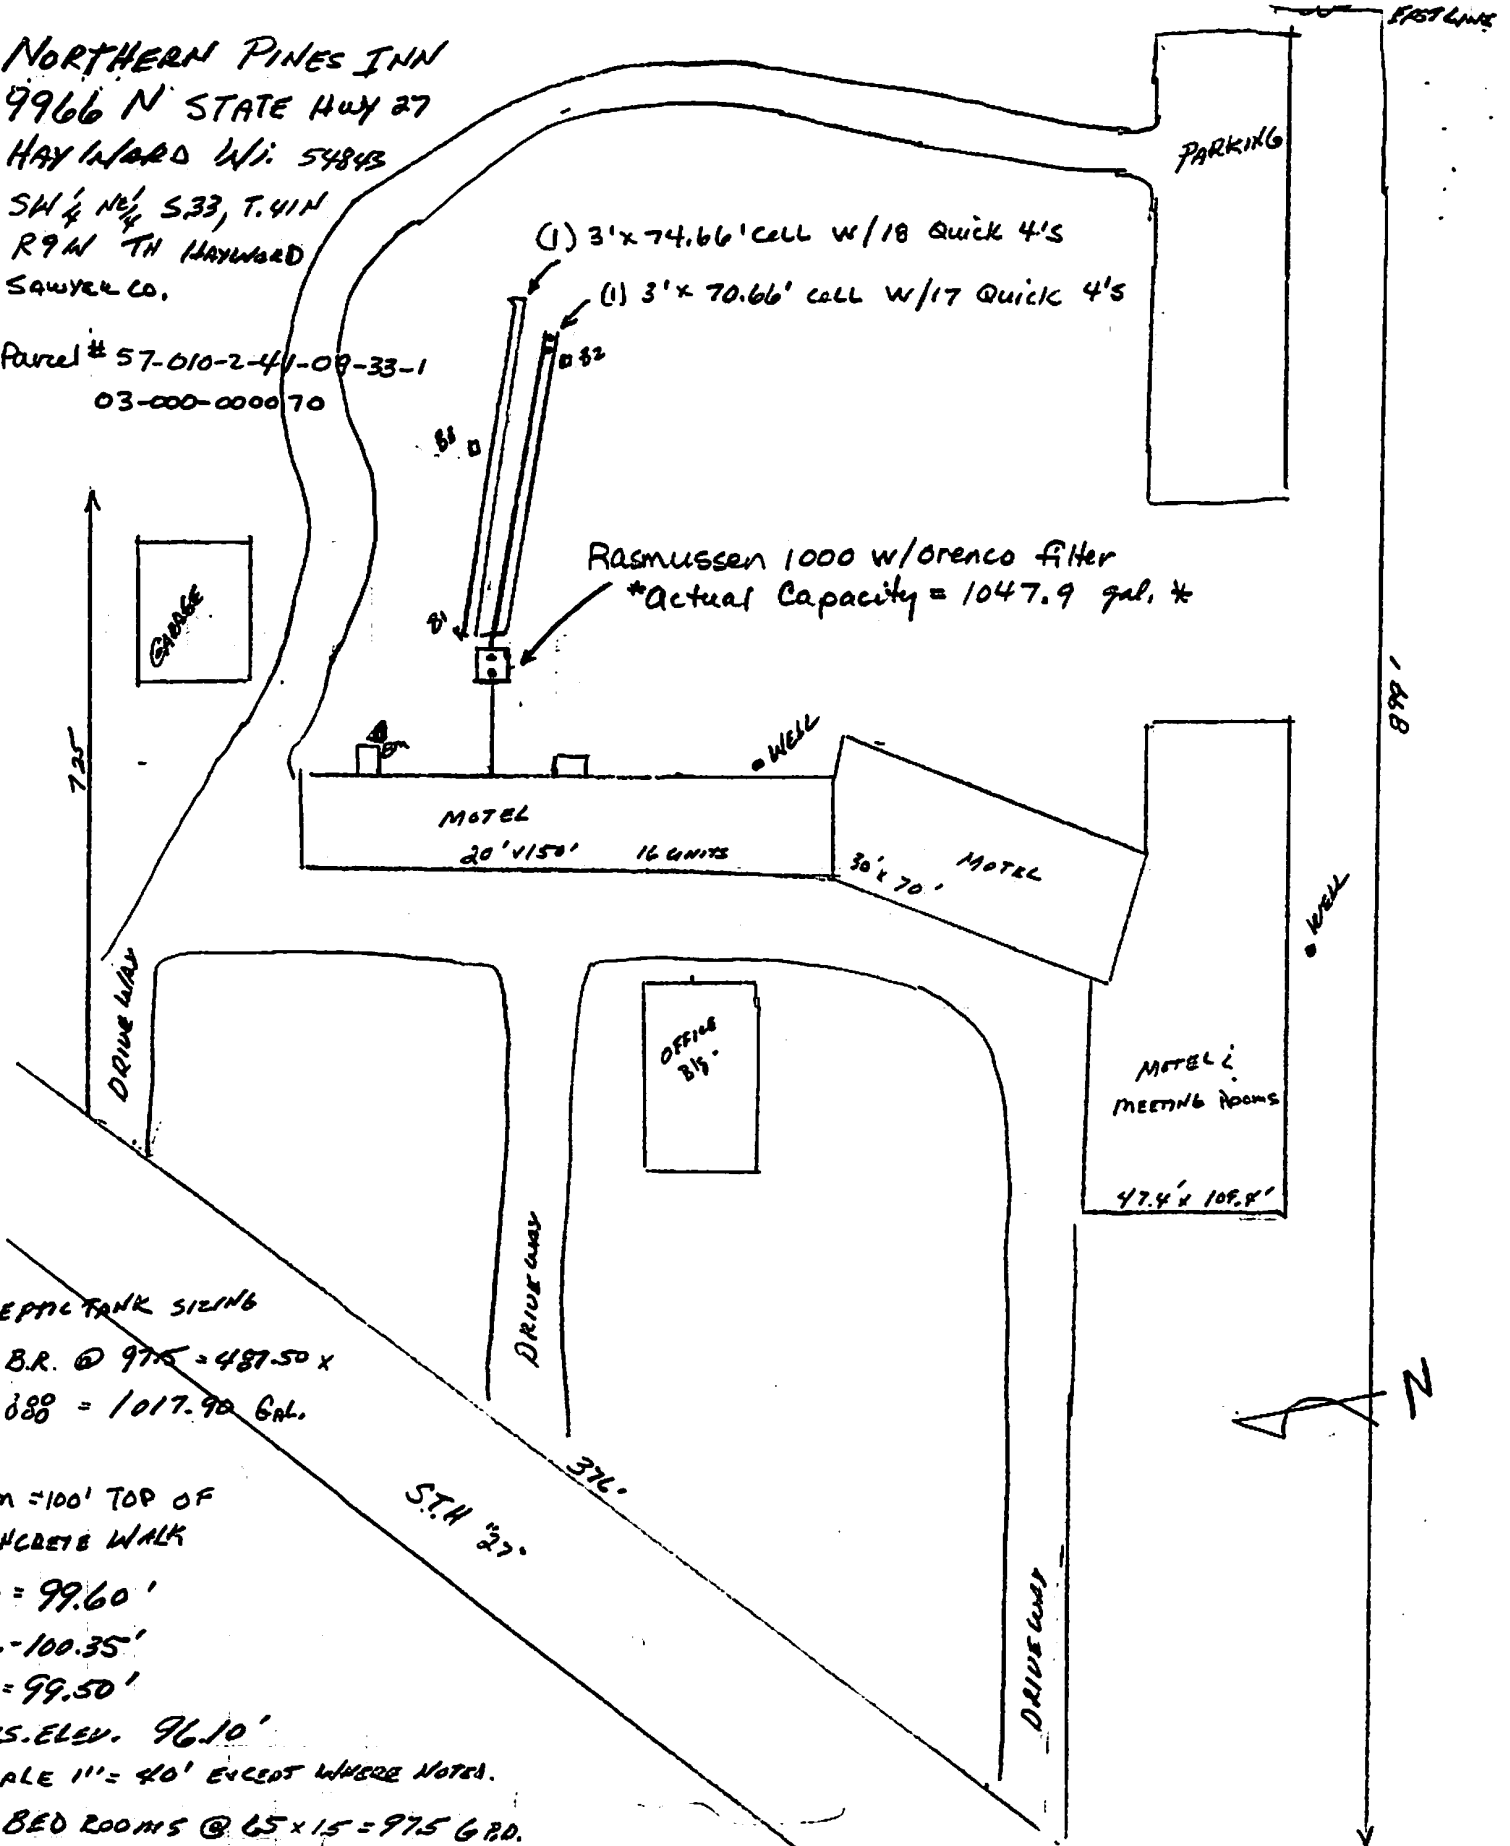 EAST LINE
NORTHERN PINES INN
9966 N STATE HWY 27
HAYWARD Wi. 54843
SW 1/4 NE 1/4 S.33, T.41N
R9W TN HAYWARD
SAWYER CO.
Parcel # 57-010-2-41-09-33-1
03-000-000070
PARKING
(1) 3' x 74.66' CELL W/18 Quick 4's
(1) 3' x 70.66' CELL W/17 Quick 4's
B2
B3
B1
Rasmussen 1000 w/orenco filter
*Actual Capacity = 1047.9 gal. *
GARAGE
725'
899'
BM
WELL
MOTEL
20' x 150' 16 UNITS
30' x 70'
MOTEL
WELL
DRIVEWAY
OFFICE
Blg.
MOTEL &
MEETING ROOMS
47.4' x 109.4'
DRIVEWAY
EPTIC TANK SIZING
B.R. @ 97.5 = 487.50 x
= 1017.90 GAL.
N
376'
S.T.H "27"
m = 100' TOP OF
NCRETE WALK
= 99.60'
- 100.35'
= 99.50'
S. ELEV. 96.10'
ALE 1" = 40' EXCEPT WHERE NOTED.
BED ROOMS @ 65 x 15 = 975 G.P.D.
DRIVEWAY